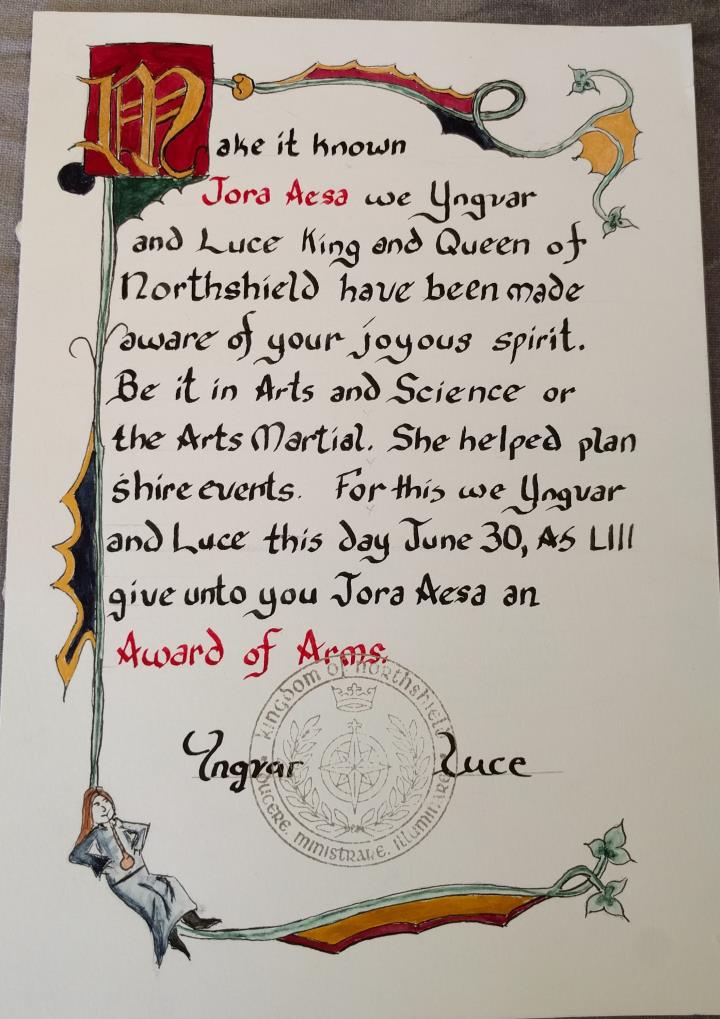 Make it known
Jora Aesa we Yngvar
and Luce King and Queen of
Northshield have been made
aware of your joyous spirit.
Be it in Arts and Science or
the Arts Martial. She helped plan
shire events. For this we Yngvar
and Luce this day June 30, AS LIII
give unto you Jora Aesa an
Award of Arms.
Kingdom of Northshield
Yngvar Luce
DUCERE, MINISTRARE, ILLUMINARE